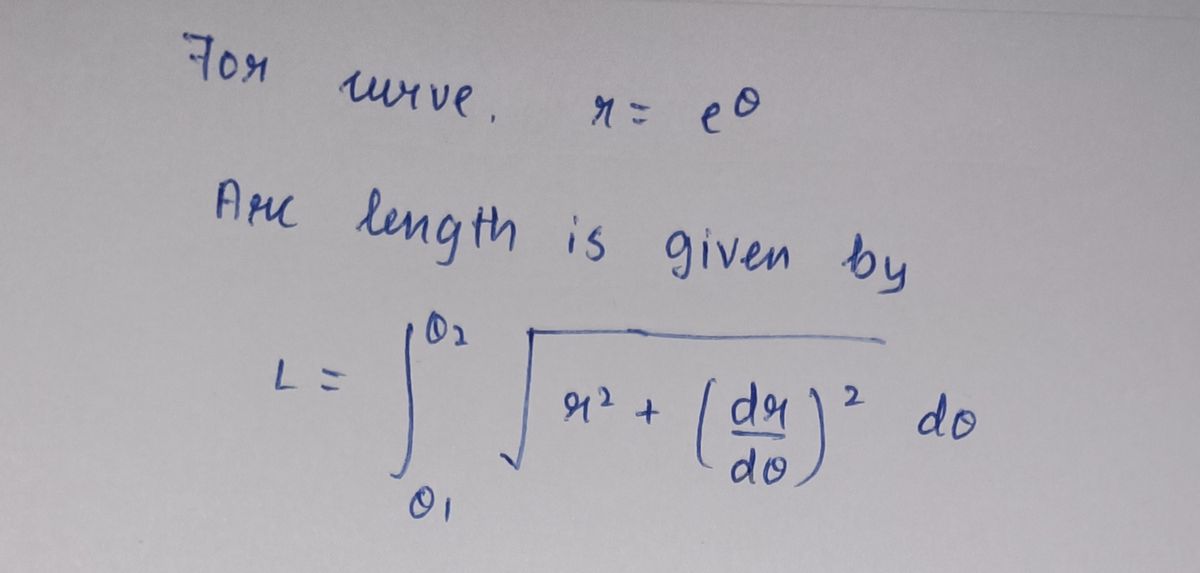 For curve. r = e^θ
Arc length is given by
L = ∫_{θ1}^{θ2} √(r² + (dr/dθ)²) dθ